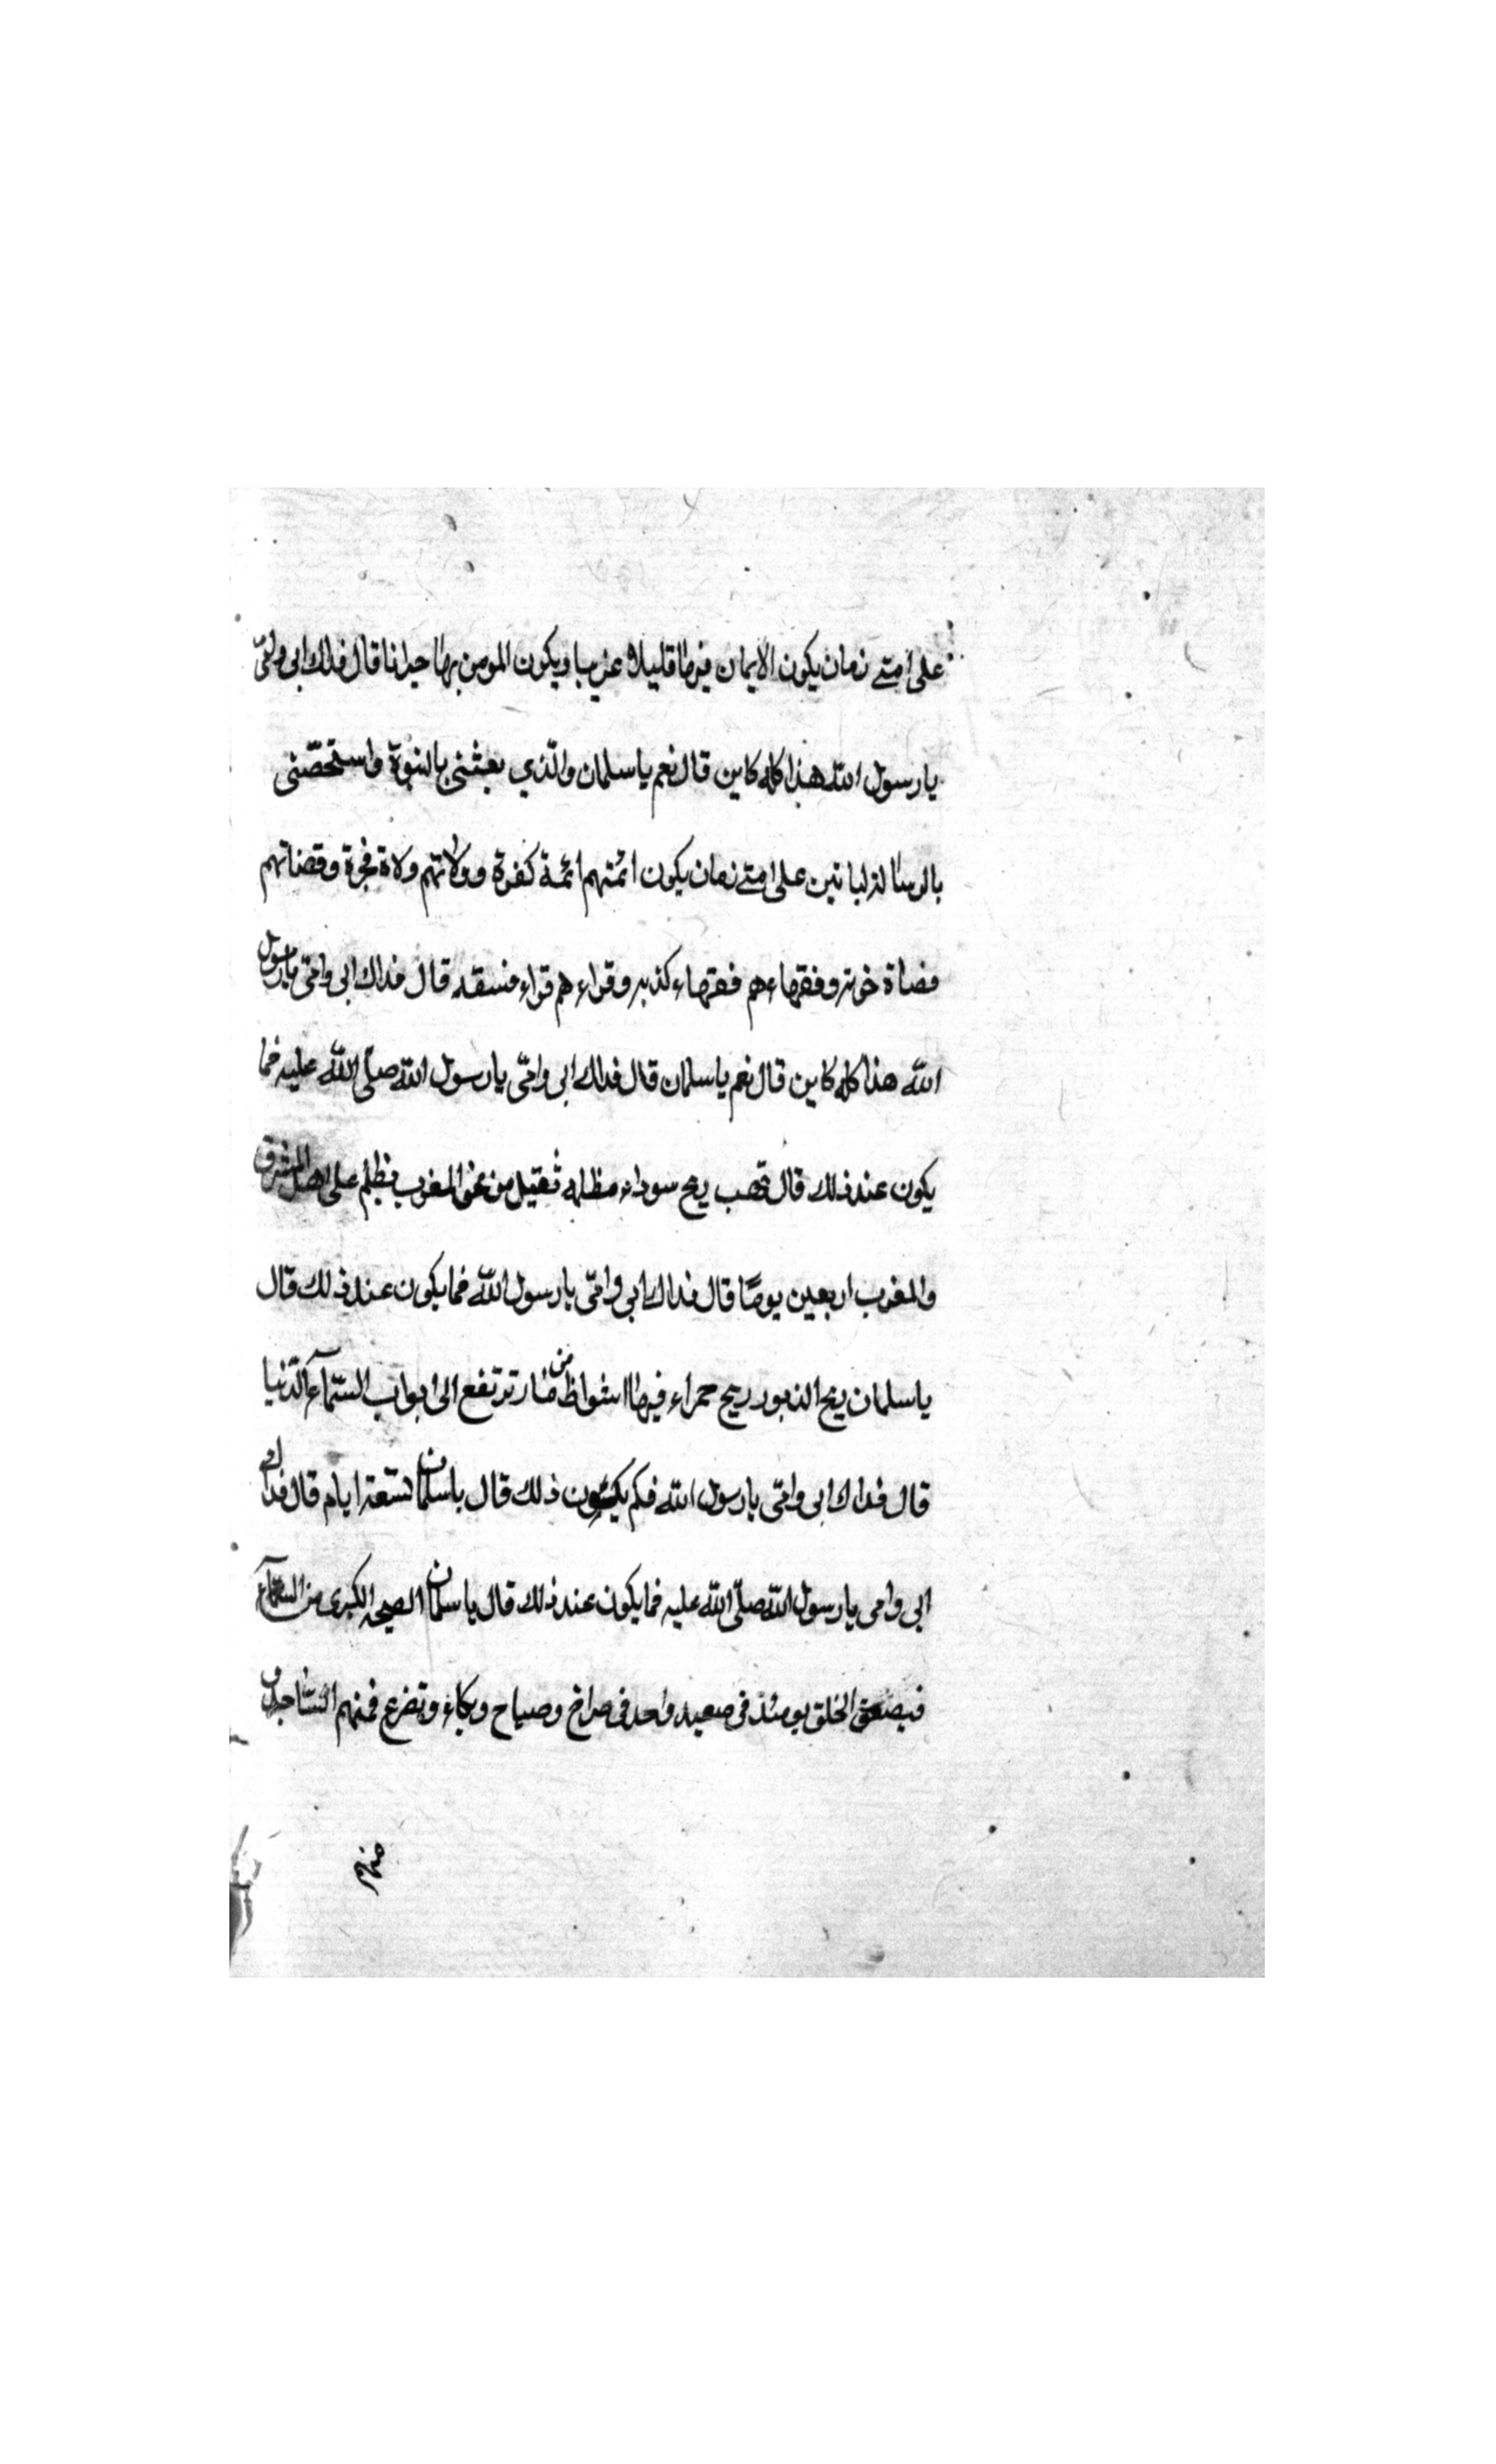 على امتے زمان يكون الايمان فيها قليلا غريبا ويكون المومن بها حيرانا قال فداك ابى وامّى
يا رسول الله هذا كله كاين قال نعم يا سلمان والّذي بعثنى بالنبوة واستخصّنى
بالرسالة لياتين على امتے زمان يكون ائمتهم ائمة كفرة وولاتهم ولاة فجرة وقضاتهم
قضاة خونة وفقهاءهم فقهاء كذبه وقراءهم قراء فسقه قال فداك ابى وامّى يا رسول
الله هذا كله كاين قال نعم يا سلمان قال فداك ابى وامّى يا رسول الله صلّى الله عليه فما
يكون عند ذلك قال تهب ريح سوداء مظلمه تقبل من نحو المغرب فيظلم على اهل المشرق
والمغرب اربعين يومًا قال فداك ابى وامّى يا رسول الله فما يكون عند ذلك قال
يا سلمان ريح الدبور ريح حمراء فيها شواظ من نار ترتفع الى ابواب السّمآء الدّنيا
قال فداك ابى وامّى يا رسول الله فكم يكون ذلك قال يا سلمان تسعة ايام قال فداك
ابى وامى يا رسول الله صلّى الله عليه فما يكون عند ذلك قال يا سلمان الصيحه الكبرى من السّمآء
فيصعق الخلق يومئذ فى صعيد واحد فى صراخ وصياح وبكاء وتضرع فمنهم السّاجدون
منهم